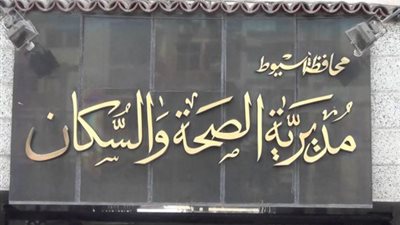 محافظة أسيوط
مُديريَّة الصحة والسُّكان